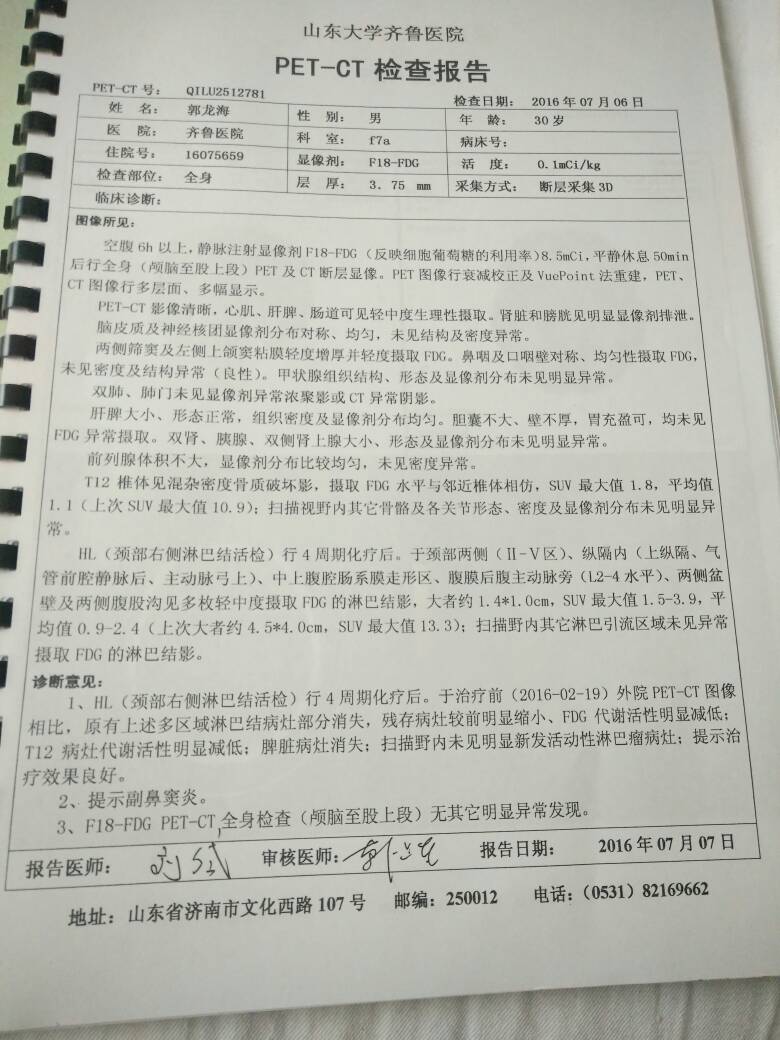 山东大学齐鲁医院
PET-CT 检查报告
PET-CT 号： QILU2512781 检查日期： 2016 年 07 月 06 日
姓 名： 郭龙海 性 别： 男 年 龄： 30 岁
医 院： 齐鲁医院 科 室： f7a 病床号：
住院号： 16075659 显像剂： F18-FDG 活 度： 0.1mCi/kg
检查部位： 全身 层 厚： 3.75 mm 采集方式： 断层采集 3D
临床诊断：
图像所见：
空腹 6h 以上，静脉注射显像剂 F18-FDG（反映细胞葡萄糖的利用率）8.5mCi，平静休息 50min
后行全身（颅脑至股上段）PET 及 CT 断层显像。PET 图像行衰减校正及 VuePoint 法重建，PET、
CT 图像行多层面、多幅显示。
PET-CT 影像清晰，心肌、肝脾、肠道可见轻中度生理性摄取。肾脏和膀胱见明显显像剂排泄。
脑皮质及神经核团显像剂分布对称、均匀，未见结构及密度异常。
两侧筛窦及左侧上颌窦粘膜轻度增厚并轻度摄取 FDG。鼻咽及口咽壁对称、均匀性摄取 FDG，
未见密度及结构异常（良性）。甲状腺组织结构、形态及显像剂分布未见明显异常。
双肺、肺门未见显像剂异常浓聚影或 CT 异常阴影。
肝脾大小、形态正常，组织密度及显像剂分布均匀。胆囊不大、壁不厚，胃充盈可，均未见
FDG 异常摄取。双肾、胰腺、双侧肾上腺大小、形态及显像剂分布未见明显异常。
前列腺体积不大，显像剂分布比较均匀，未见密度异常。
T12 椎体见混杂密度骨质破坏影，摄取 FDG 水平与邻近椎体相仿，SUV 最大值 1.8，平均值
1.1（上次 SUV 最大值 10.9）；扫描视野内其它骨骼及各关节形态、密度及显像剂分布未见明显异
常。
HL（颈部右侧淋巴结活检）行 4 周期化疗后。于颈部两侧（Ⅱ-Ⅴ区）、纵隔内（上纵隔、气
管前腔静脉后、主动脉弓上）、中上腹腔肠系膜走形区、腹膜后腹主动脉旁（L2-4 水平）、两侧盆
壁及两侧腹股沟见多枚轻中度摄取 FDG 的淋巴结影，大者约 1.4*1.0cm，SUV 最大值 1.5-3.9，平
均值 0.9-2.4（上次大者约 4.5*4.0cm，SUV 最大值 13.3）；扫描野内其它淋巴引流区域未见异常
摄取 FDG 的淋巴结影。
诊断意见：
1、HL（颈部右侧淋巴结活检）行 4 周期化疗后。于治疗前（2016-02-19）外院 PET-CT 图像
相比，原有上述多区域淋巴结病灶部分消失，残存病灶较前明显缩小、FDG 代谢活性明显减低；
T12 病灶代谢活性明显减低；脾脏病灶消失；扫描野内未见明显新发活动性淋巴瘤病灶；提示治
疗效果良好。
2、提示副鼻窦炎。
3、F18-FDG PET-CT 全身检查（颅脑至股上段）无其它明显异常发现。
报告医师： 审核医师： 报告日期： 2016 年 07 月 07 日
地址：山东省济南市文化西路 107 号 邮编：250012 电话：（0531）82169662